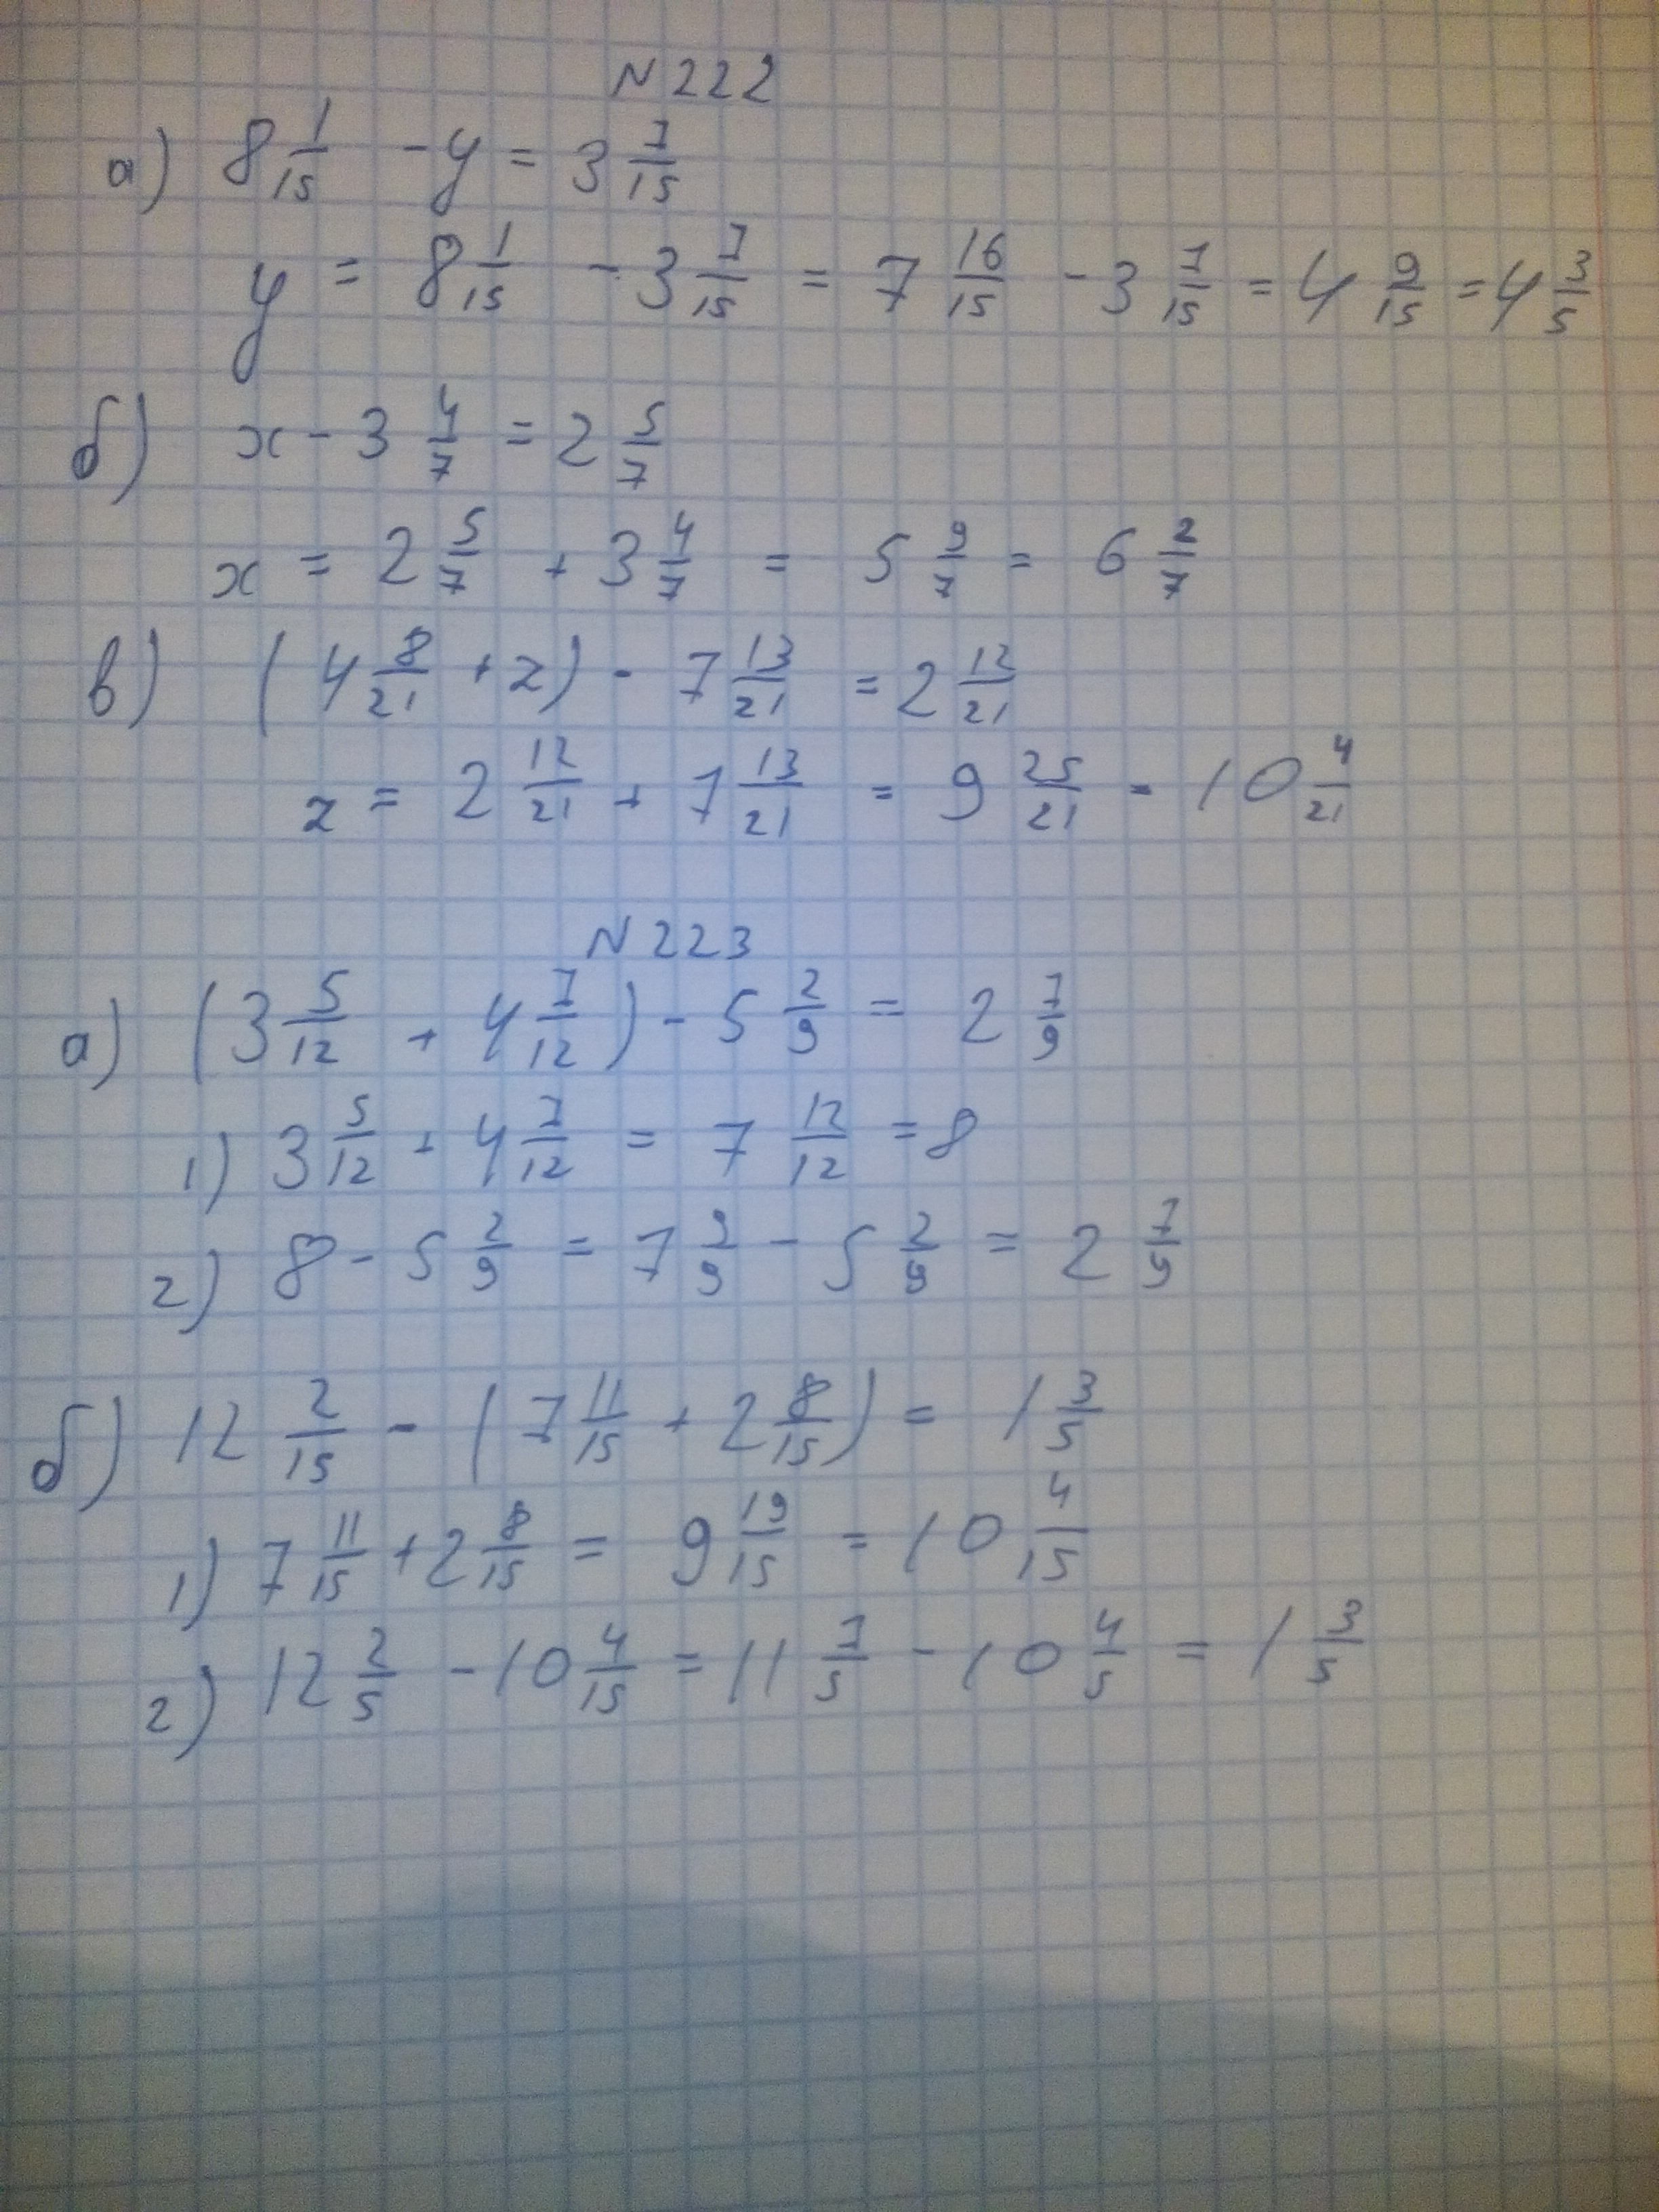 N 222
а) 8 1/15 - y = 3 7/15
y = 8 1/15 - 3 7/15 = 7 16/15 - 3 7/15 = 4 9/15 = 4 3/5
б) x - 3 4/7 = 2 5/7
x = 2 5/7 + 3 4/7 = 5 9/7 = 6 2/7
в) (4 8/21 + z) - 7 13/21 = 2 12/21
z = 2 12/21 + 7 13/21 = 9 25/21 = 10 4/21
N 223
а) (3 5/12 + 4 7/12) - 5 2/9 = 2 7/9
1) 3 5/12 + 4 7/12 = 7 12/12 = 8
2) 8 - 5 2/9 = 7 9/9 - 5 2/9 = 2 7/9
б) 12 2/15 - (7 11/15 + 2 8/15) = 1 3/5
1) 7 11/15 + 2 8/15 = 9 19/15 = 10 4/15
2) 12 2/5 - 10 4/15 = 11 7/5 - 10 4/5 = 1 3/5